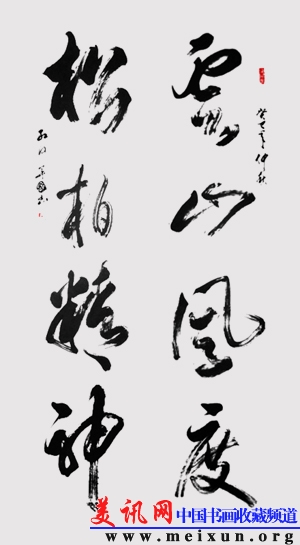 雲山風度
癸巳年仲秋
松柏精神
美讯网 中国书画收藏频道
www.meixun.org